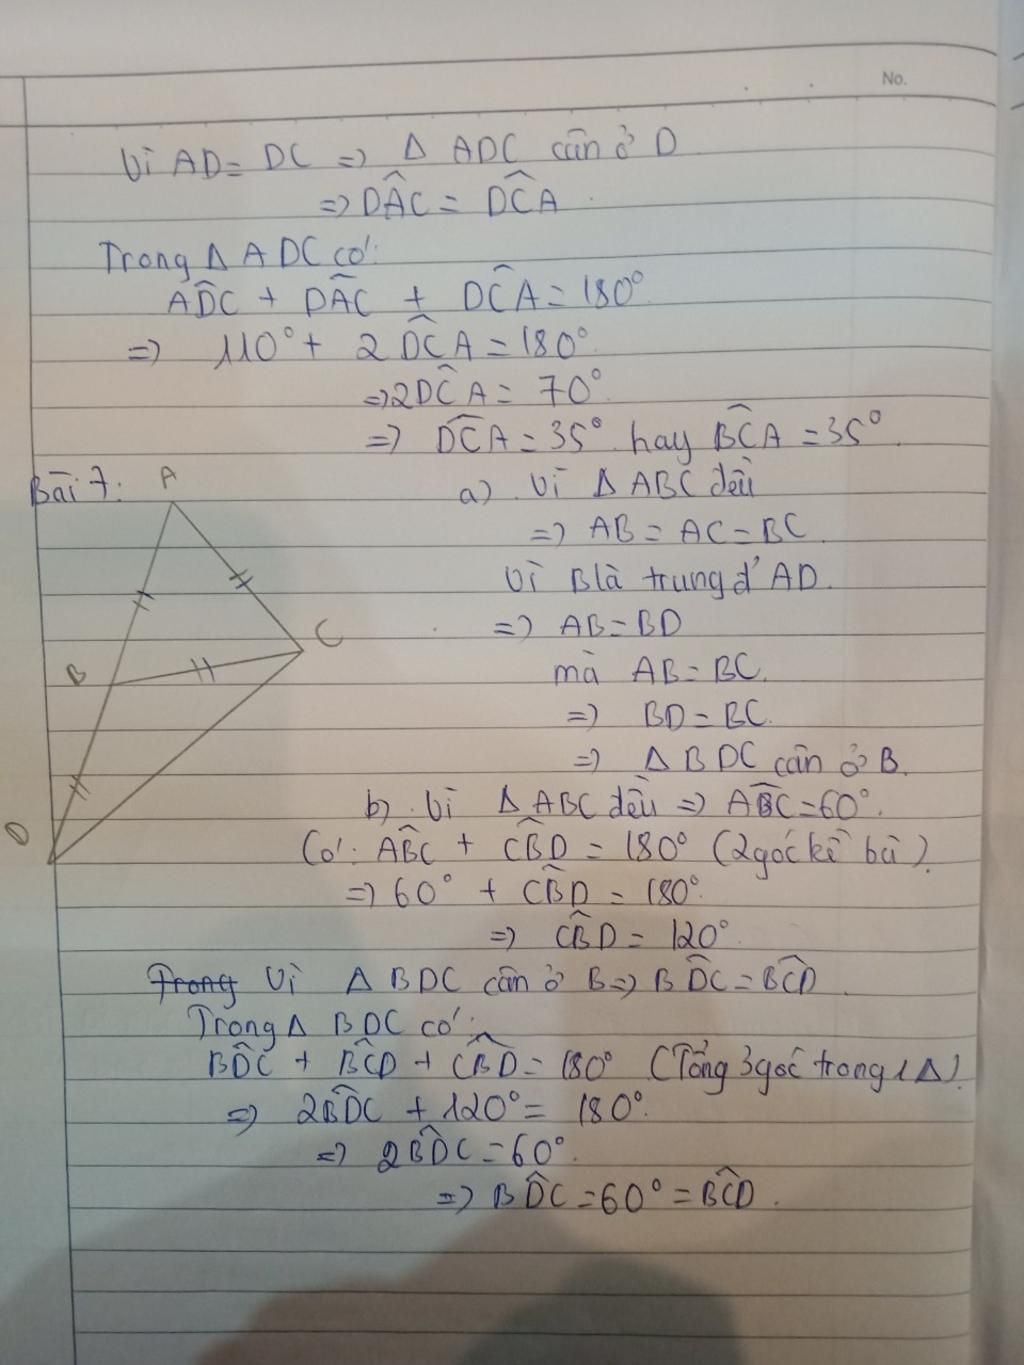 No.
Vì AD = DC => Δ ADC cân ở D
=> DÂC = DĈA
Trong Δ ADC có:
AD̂C + DÂC + DĈA = 180°
=> 110° + 2DĈA = 180°.
=> 2DĈA = 70°
=> DĈA = 35° hay BĈA = 35°.
Bài 7:
A
B
C
D
a) Vì Δ ABC đều
=> AB = AC = BC.
Vì B là trung đ' AD.
=> AB = BD
mà AB = BC.
=> BD = BC.
=> Δ BDC cân ở B.
b) Vì Δ ABC đều => AB̂C = 60°.
Có: AB̂C + CB̂D = 180° (2 góc kề bù).
=> 60° + CB̂D = 180°.
=> CB̂D = 120°.
Trong Vì Δ BDC cân ở B => BD̂C = BĈD.
Trong Δ BDC có:
BD̂C + BĈD + CB̂D = 180° (Tổng 3 góc trong 1 Δ).
=> 2BD̂C + 120° = 180°.
=> 2BD̂C = 60°.
=> BD̂C = 60° = BĈD.